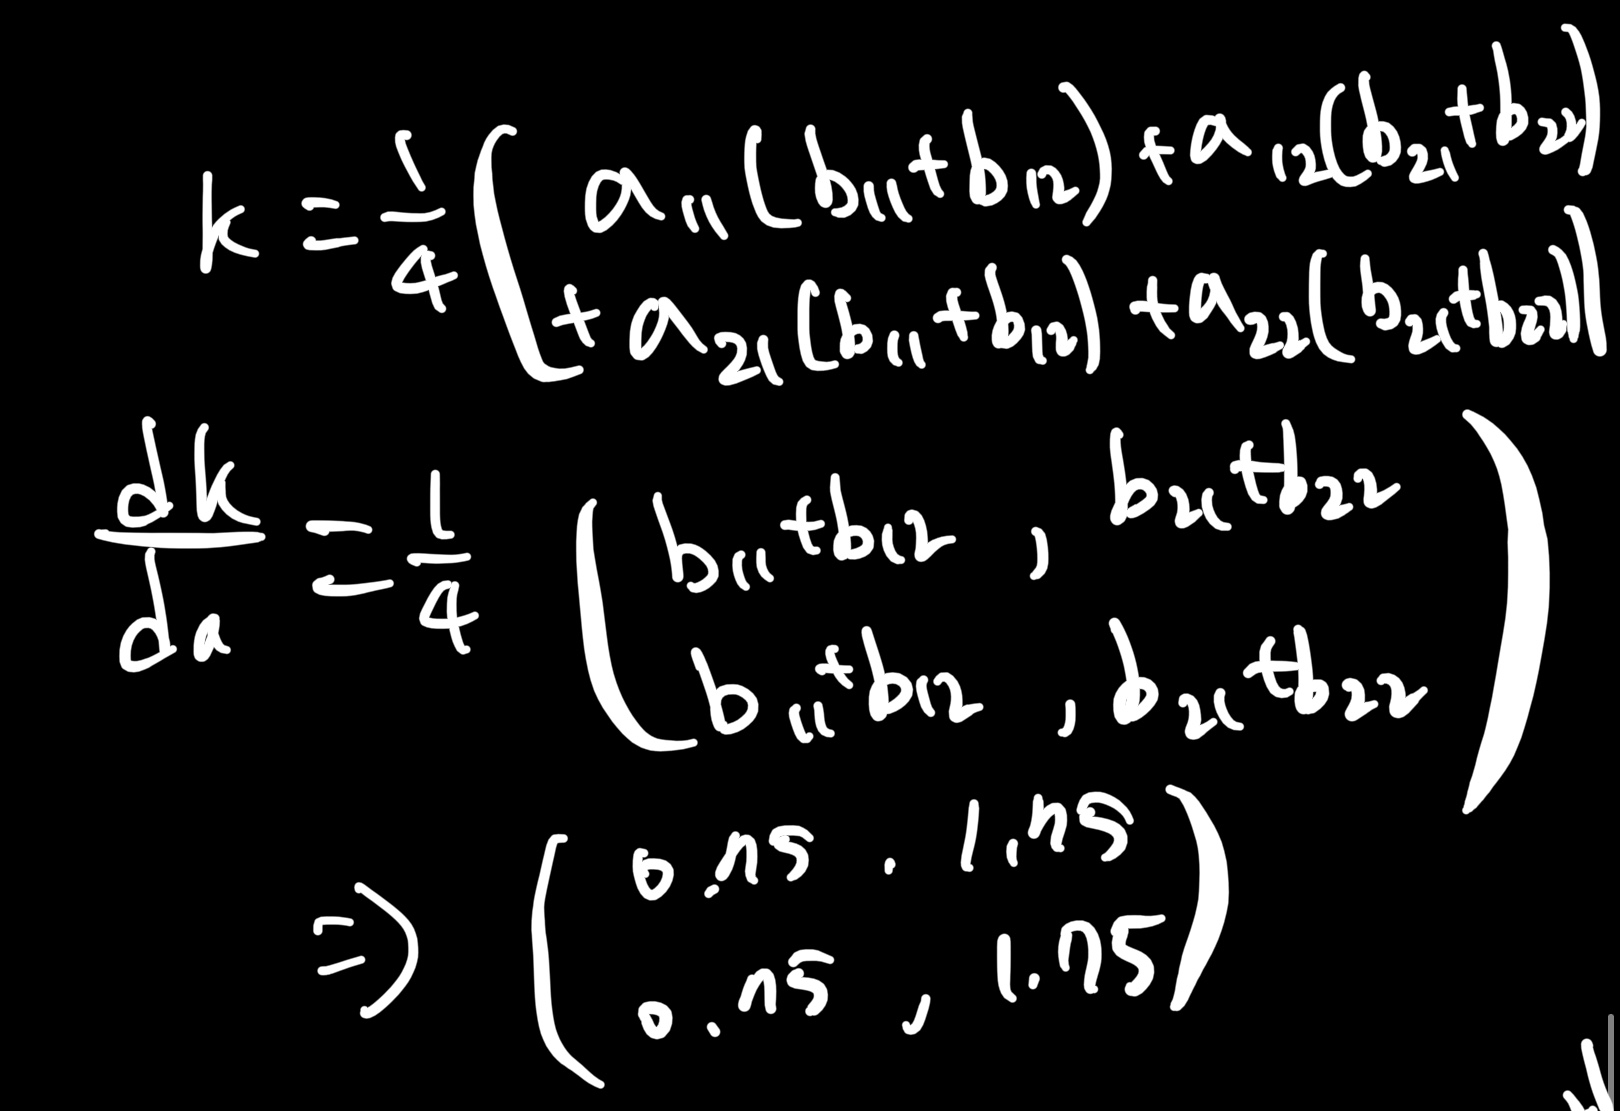 k = 1/4 ( a₁₁(b₁₁+b₁₂) + a₁₂(b₂₁+b₂₂)
+ a₂₁(b₁₁+b₁₂) + a₂₂(b₂₁+b₂₂))
dk/da = 1/4 ( b₁₁+b₁₂ , b₂₁+b₂₂
b₁₁+b₁₂ , b₂₁+b₂₂ )
⇒ ( 0.75 . 1.75
0.75 , 1.75 )